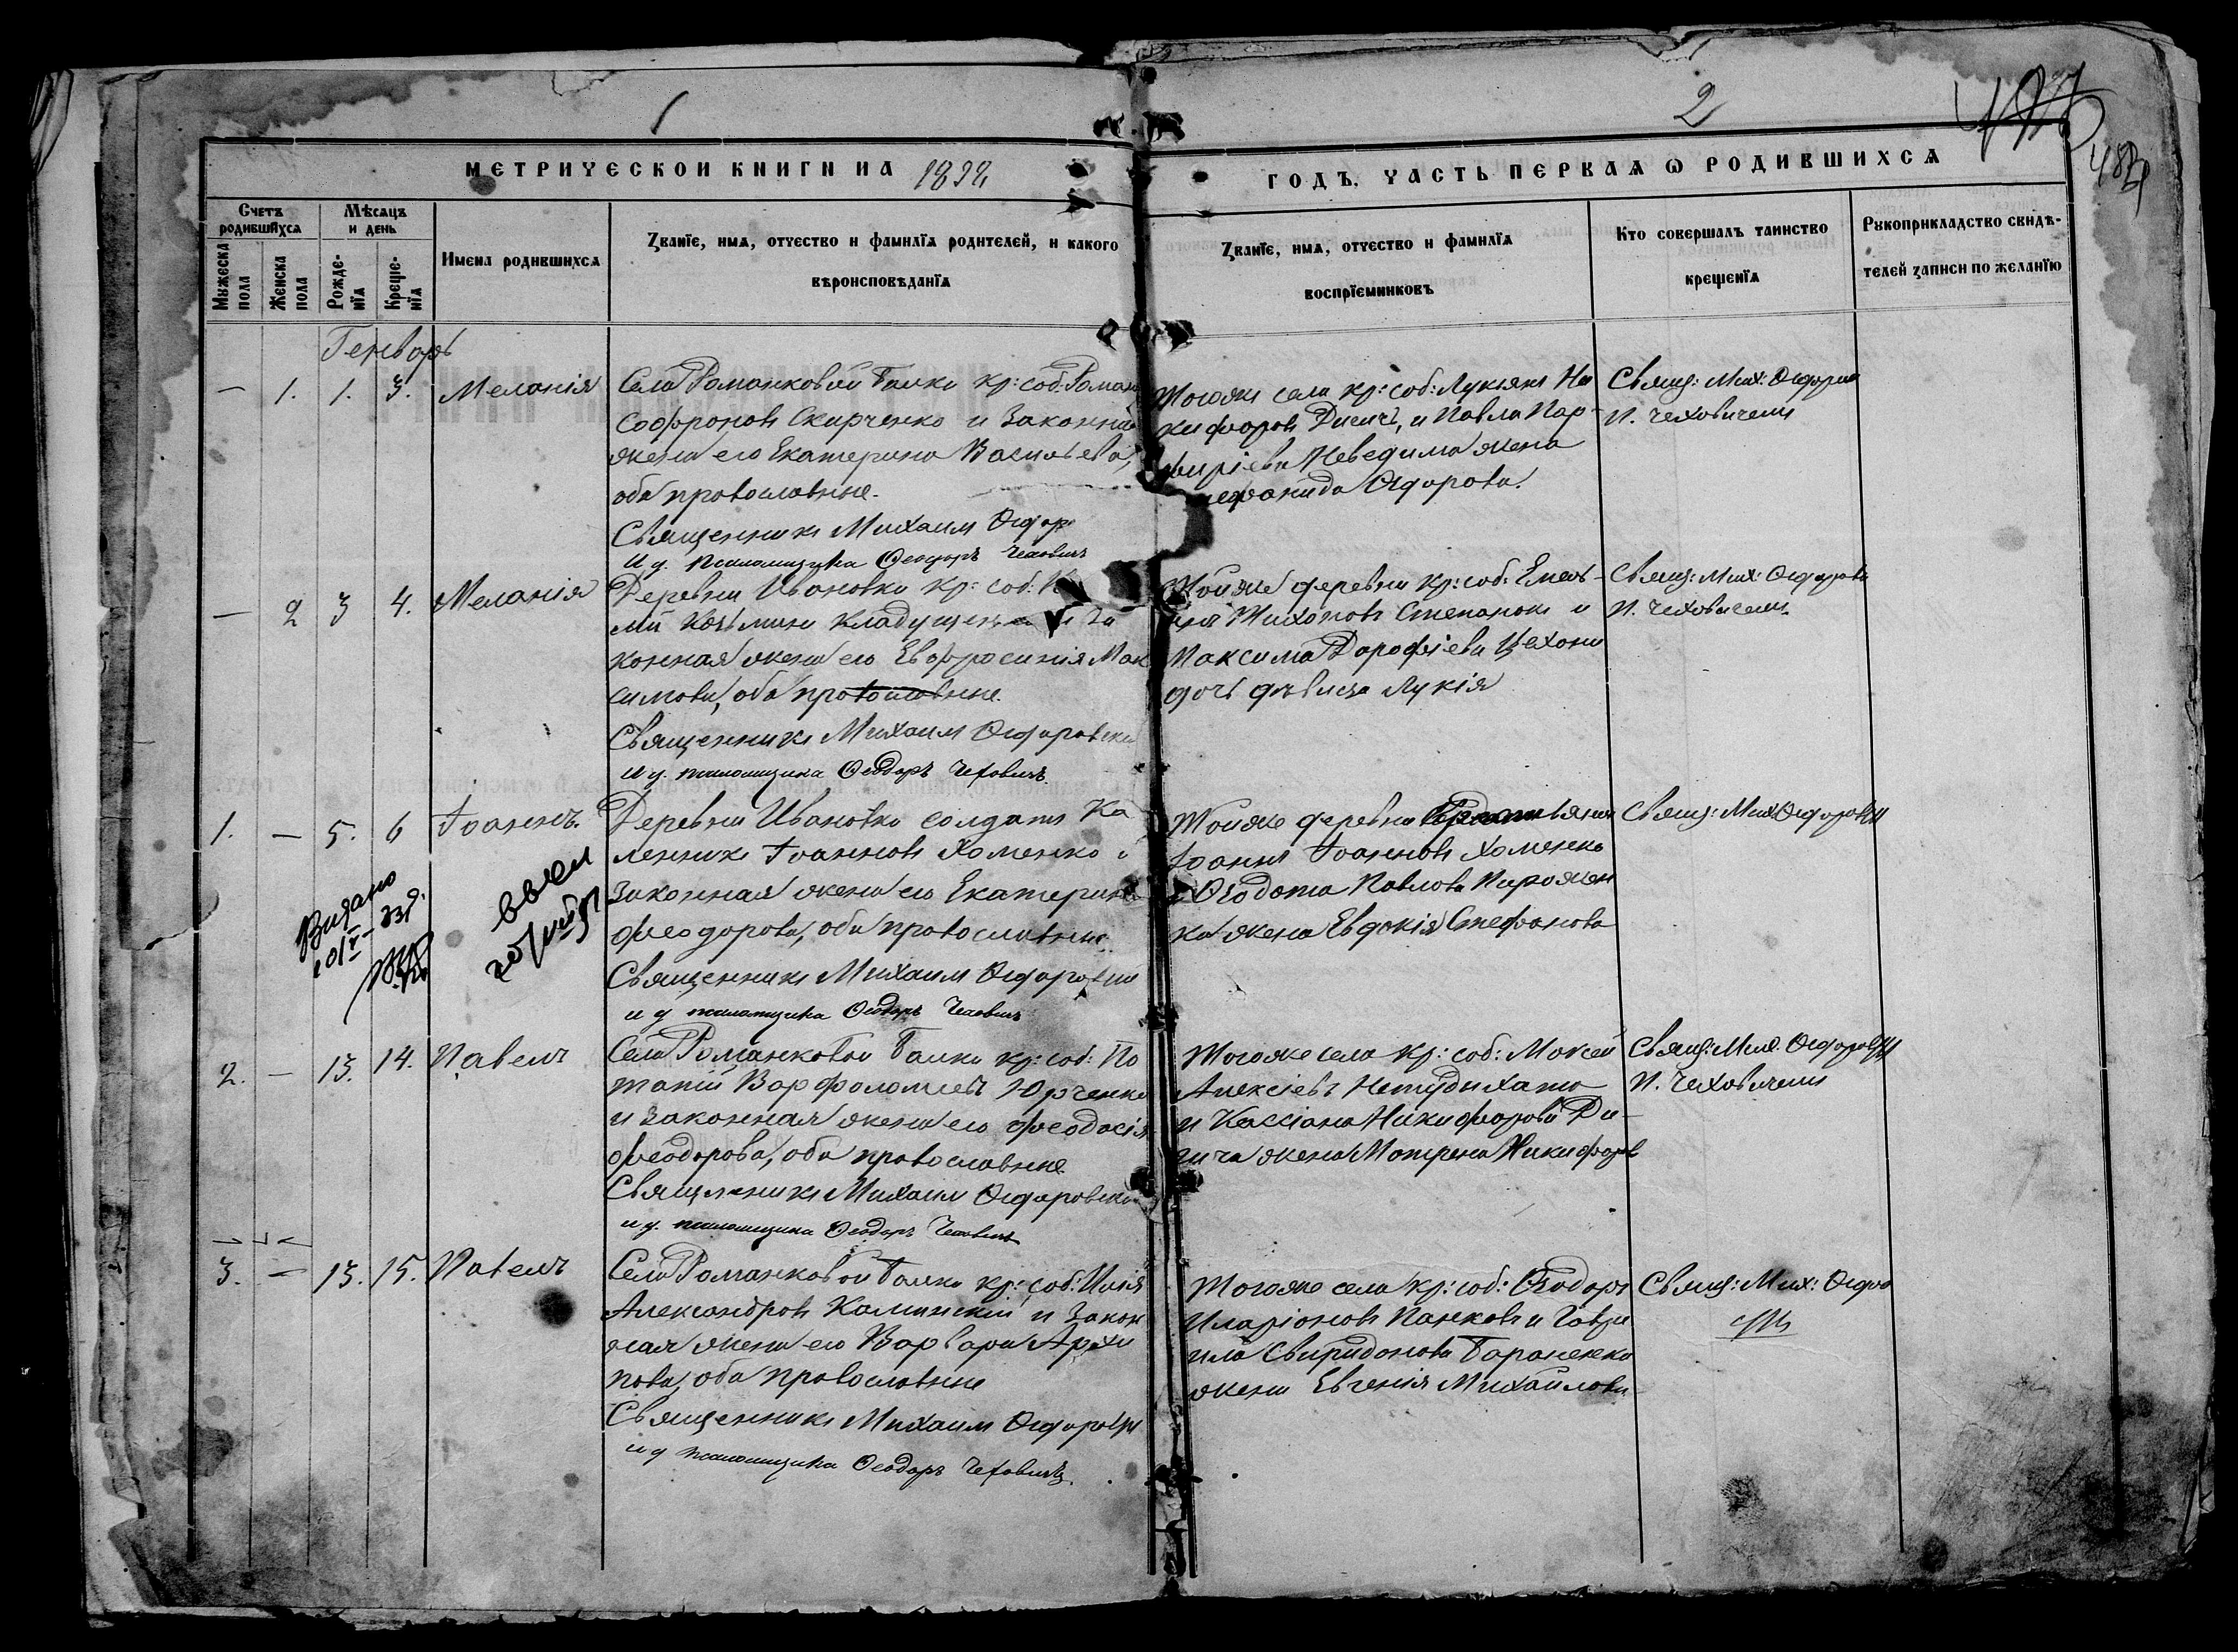 1
2
483
МЕТРИЧЕСКОЙ КНИГИ НА 189
ГОДЪ, ЧАСТЬ ПЕРВАѦ Ѡ РОДИВШИХСѦ
Счетъ родившихсѧ
Мѣсѧцъ и день
Мужеска пола
Женска пола
Рожденїѧ
Крещенїѧ
Имена родившихсѧ
Званїе, имѧ, отчество и фамилїѧ родителей, и какого
вѣроисповѣданїѧ
Званїе, имѧ, отчество и фамилїѧ
воспрїемниковъ
Кто совершалъ таинство
крещенїѧ
Рукоприкладство свидѣ-
телей записи по желанїю
Генварь
— 1. 1. 3. Меланія
Села Романковой Балки кр: соб: Роман
Софронов Скирченко и законная
жена его Екатерина Васильева,
оба православные.
Священник Михаил Федор
И д. псаломщика Ѳеодоръ Чехович
Тогоже села кр: соб: Лукіян Ни
кифоров Дигич, и Павла Пор-
фиріева Неведима жена
Федорова.
Свящ: Мих: Федоров
П. Чеховичем
— 2 3 4. Меланія
Деревни Ивановки кр: соб:
мин Кладущен и За
конная жена его Евфросинія Мак
симова, оба православные.
Священник Михаил Федоровский
и д. псаломщика Ѳеодоръ Чеховичъ.
Тойже деревни кр: соб: Емель-
ян Тихонов Степанок и
Максима Дорофіева Цехони
дочь дѣвица Лукія
Свящ: Мих: Федоров
П. Чеховичем.
1. — 5. 6 Іоаннъ.
Выдано
Деревни Ивановки солдат Ка
ленник Іоаннов Хоменко и
законная жена его Екатерина
Феодорова, оба православные.
Священник Михаил Федоровский
и д псаломщика Ѳеодоръ Чехович
Тойже деревни
Іоанн Іоаннов Хоменко
и Ѳеодота Павлова Пирожен
ка жена Евдокія Стефанова
Свящ: Мих Федоровский
2. — 13. 14. Павелъ
Села Романковой Балки кр: соб: По
тапій Варфоломеев Юрченко
и законная жена его Феодосія
Феодорова, оба православные.
Священник Михаил Федоровский
и д. псаломщика Ѳеодоръ Чехович
Тогоже села кр: соб: Моисей
Алексіевъ Нетудыхата
и Кассіана Никифорова Ди-
гича жена Мотрона Никифоров
Свящ: Мих. Федоровский
П. Чеховичем
3. — 13. 15. Павелъ
Села Романковой Балки кр: соб: Илія
Александров Калинскій и Закон
ная жена его Варвара Архи
пова, оба православные
Священник Михаил Федоровский
и д псаломщика Ѳеодоръ Чеховичъ.
Тогоже села кр: соб: Ѳеодор
Иларіонов Панков и Гаври
ила Свиридонова Бараненка
жена Евгенія Михайлова
Свящ: Мих: Федо